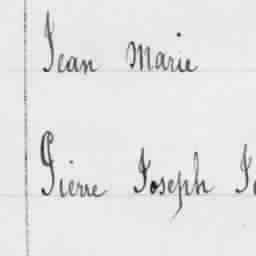 Jean Marie
Pierre Joseph